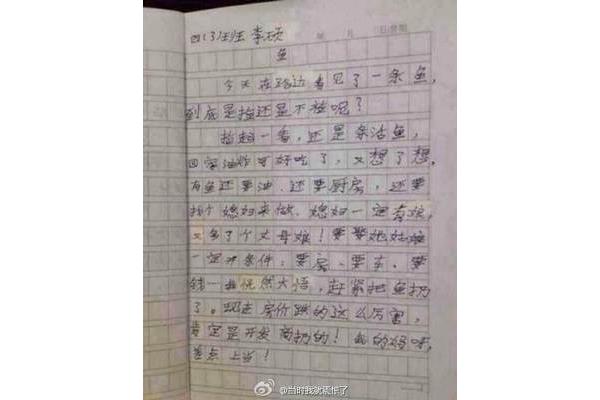 四(3)班 李硕
年 月 日 星期
鱼
今天在路边看见了一条鱼,
到底是捡还是不捡呢?
捡起一看,还是条活鱼,
回家油炸可好吃了,又想了想,
有鱼还要油、还要厨房,还要
找个媳妇来做、媳妇一定有娘,
又多了个丈母娘!要娶她姑娘
一定开条件:要房、要车、要
钱一我恍然大悟,赶紧把鱼扔
了。现在房价跌的这么厉害,
肯定是开发商扔的!我的妈呀,
差点上当!
@当时我就震惊了